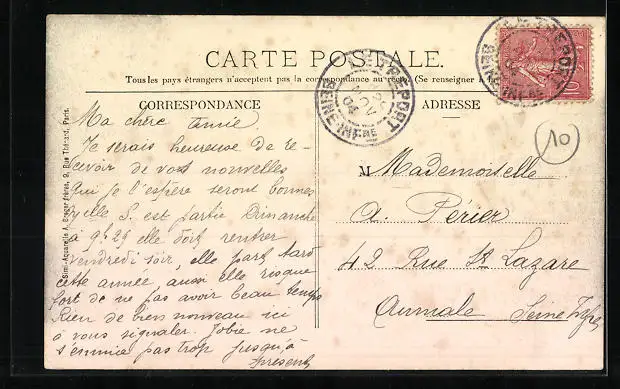 CARTE POSTALE.
Tous les pays étrangers n'acceptent pas la correspondance au recto (Se renseigner à
CORRESPONDANCE
ADRESSE
LE TRÉPORT
SEINE-INFRE
04
LE TRÉPORT
SEINE-INFRE
10
Simi-Aquarelle A. Breger frères, 9, Rue Thénard, Paris.
Ma chère amie
Je serais heureuse de re-
cevoir de vos nouvelles
qui je l'espère seront bonnes
elle S. est partie Dimanche
à 9h 29 elle doit rentrer
vendredi soir, elle part tard
cette année, aussi elle risque
fort de ne pas avoir beau temps
Rien de bien nouveau ici
à vous signaler. Jobie ne
s'ennuie pas trop jusqu'à
présent
M Mademoiselle
A. Périer
42 Rue St Lazare
Aumale Seine Infre